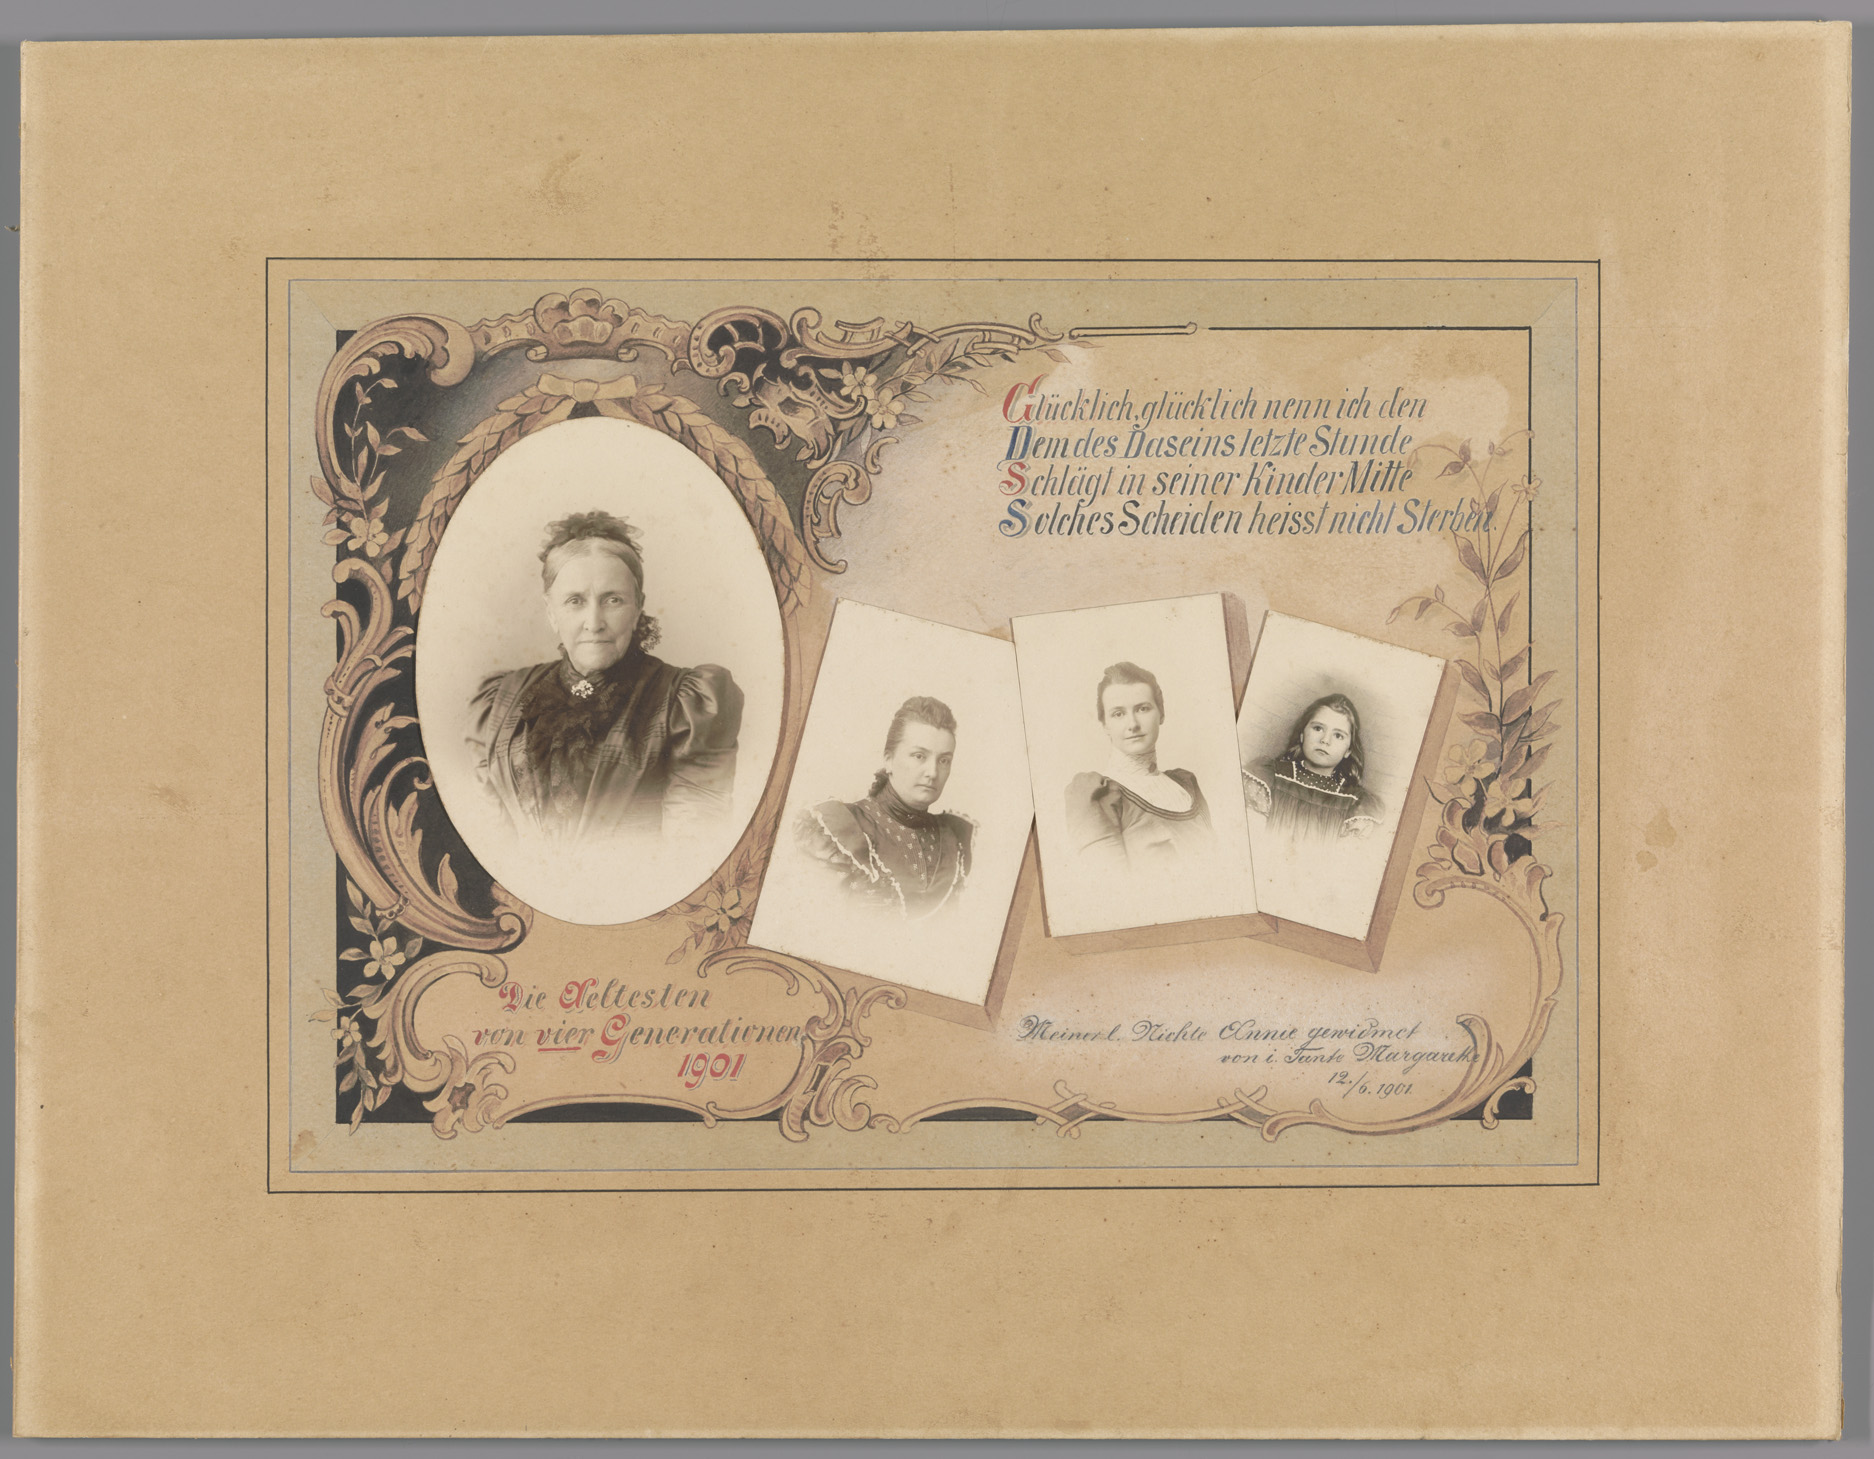 Glücklich, glücklich nenn ich den
Dem des Daseins letzte Stunde
Schlägt in seiner Kinder Mitte
Solches Scheiden heisst nicht Sterben.
Die Aeltesten
von vier Generationen
1901
Meiner l. Nichte Annie gewidmet
von i. Tante Margarethe
12./6. 1901.